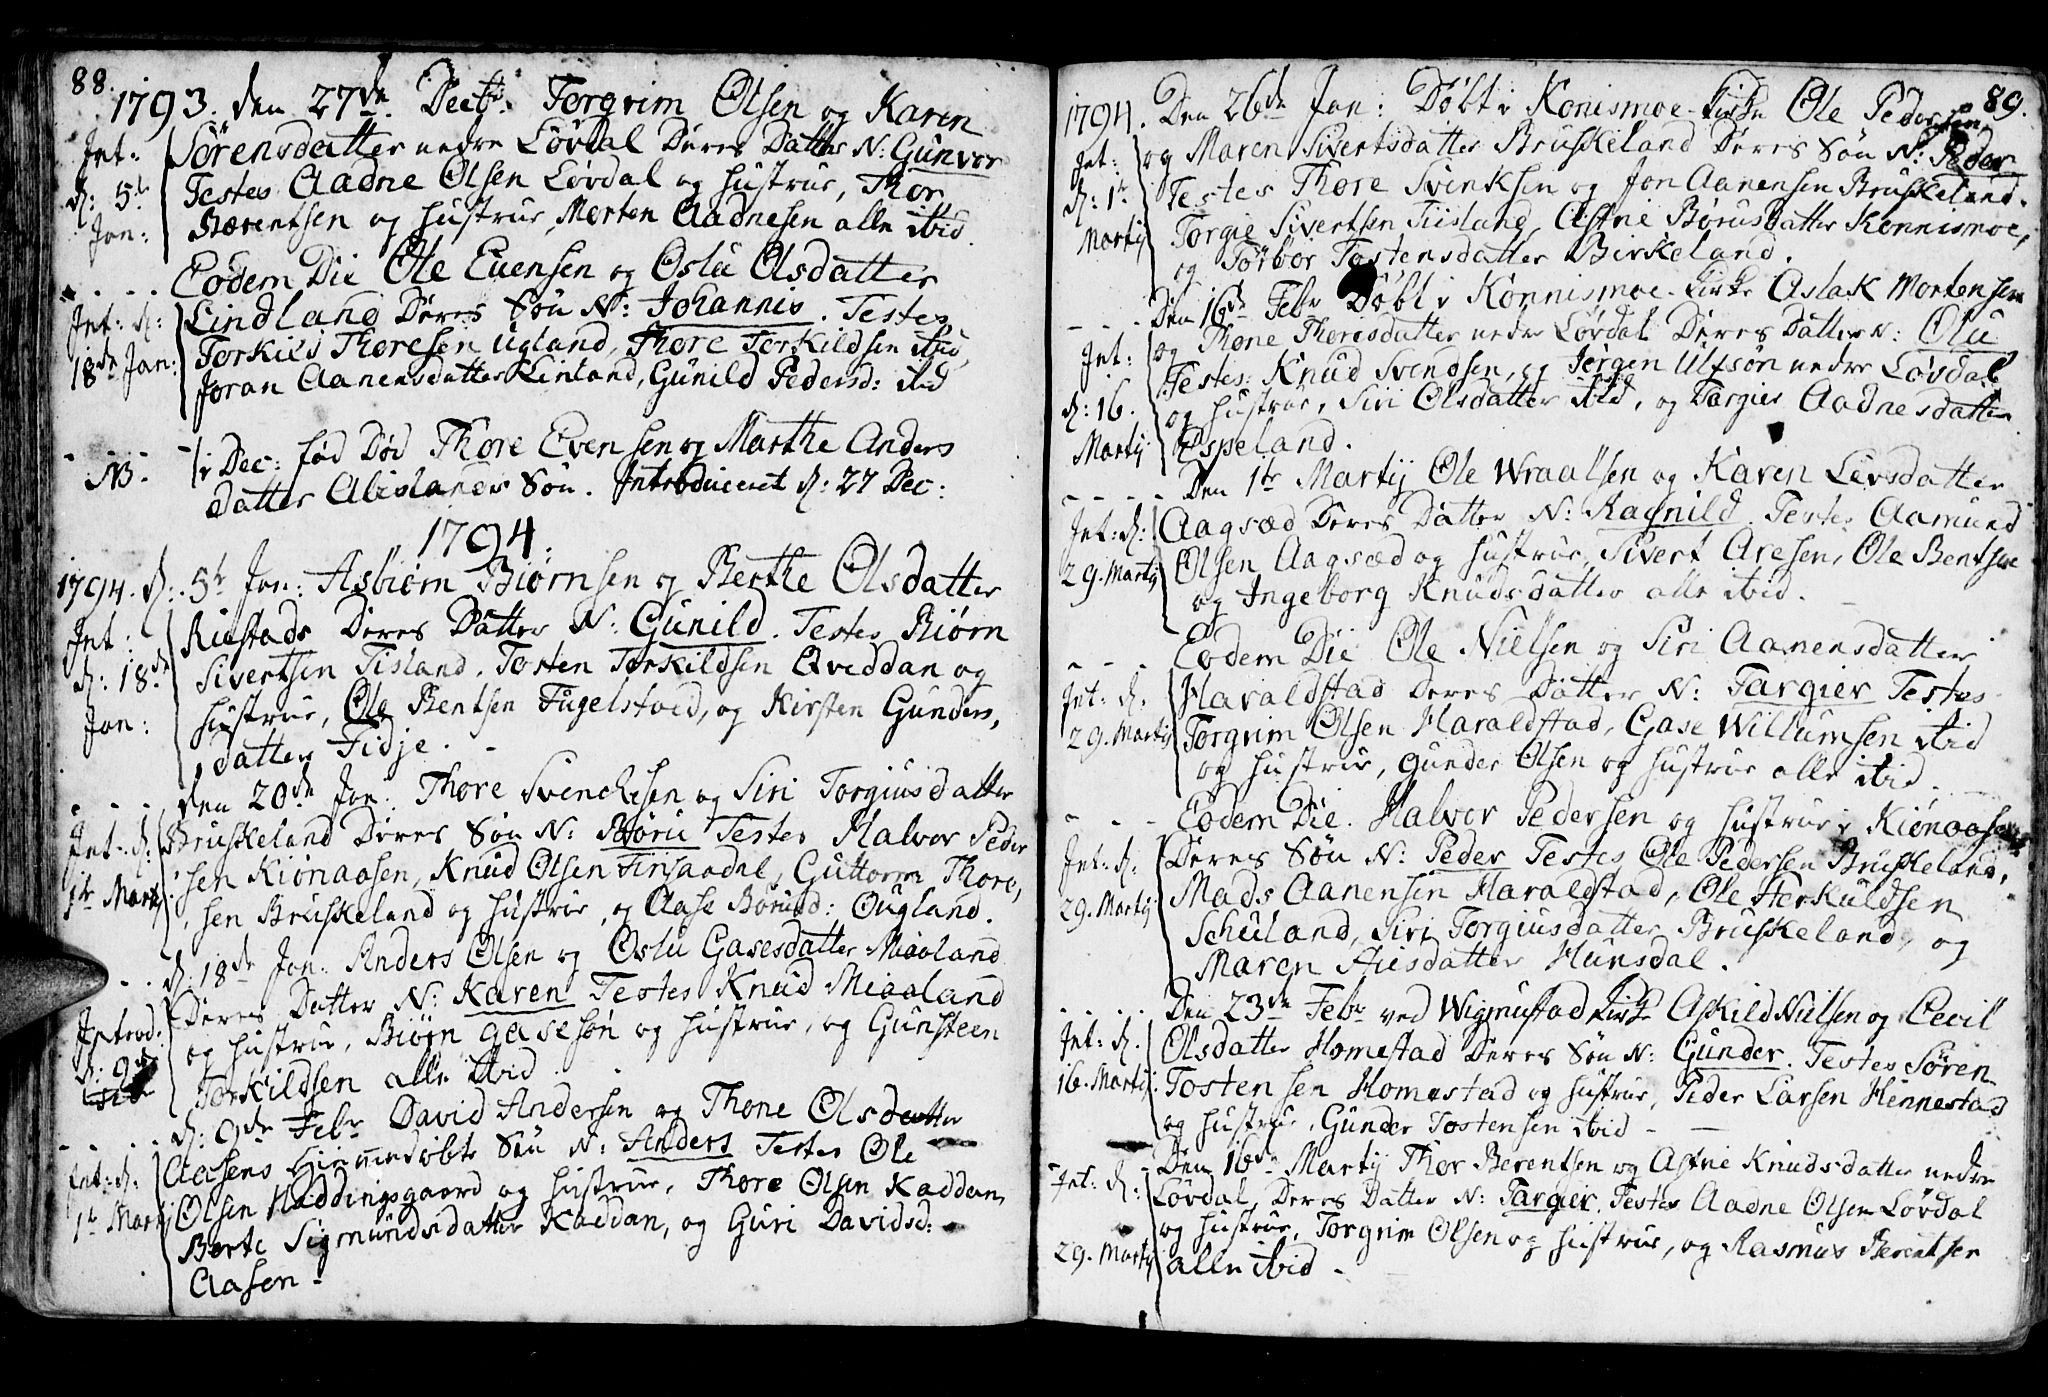 88.
1793. den 27de Decbr. Torgrim Olsen og Karen
Int: Sörensdatter nedre Lövdal Deres Datter N: Gunvor
d: 5te Testes Aadne Olsen Lövdal og Hustrue, Thor
Jan: Bærentsen og Hustrue, Morten Aadnesen alle ibid.
Eodem Die Ole Evensen og Oslu Olsdatter
Int: d: Lindland Deres Sön N: Johannis. Testes
18de Jan: Torkild Thoresen Ugland, Thore Torkildsen ibid,
Joran Aanensdatter Linland, Gunild Pedersd: ibid
NB. i Dec: fød Død Thore Evensen og Marthe Anders
Datter Abeslands Sön. Introduceret d: 27 Dec:
1794.
1794. d: 5te Jan: Asbiørn Biørnsen og Berthe Olsdatter
Int: Riestads Deres Datter N: Gunild. Testes Biørn
d: 18de Sivertsen Tisland, Tosten Torkildsen Qveddan og
Jan: Hustrue, Ole Bentsen Fugelstved, og Kirsten Gunders,
datter Fidje.
den 20de Jan: Thore Svenchesen og Siri Torgiusdatter
Int. d: Bruskeland Deres Sön N: Böru Testes Halvor Peder
1te Martij sen Kiønaasen, Knud Olsen Finsaadal, Guttorm Thore,
sen Bruskeland og Hustrue, og Aase Börusd: Ougland.
d: 18de Jan: Anders Olsen og Oslu Gasesdatter Miaaland
Deres Datter N: Karen Testes Knud Miaaland
Introd: og Hustrue, Biørn Gasesøn og Hustrue, og Gunsteen
d: 9de Torkildsen alle ibid
d: 9de Febr David Andersen og Thone Olsdatter
Int: d: Aasens Hiemmedöbte Sön N: Anders Testes Ole
1te Martij Olsen Haddingsgaard og Hustrue, Thore Olsen Kaddan,
Berte Sigmundsdatter Kaddan, og Guri Davidsd:
Aasen.
89.
1794. Den 26de Jan: Döbt i Konismoe Kirke Ole Pedersen
Int: og Maren Sivertsdatter Bruskeland Deres Sön N: Peder
d: 1te Testes Thore Svenksen og Jon Aanensen Bruskeland.
Martij Torgie Sivertsen Tiisland, Astrie Börusdatter Konnismoe,
og Torbor Tostensdatter Birkeland.
Den 16de Febr Döbt i Konnismoe Kirke Aslak Mortensen
Int: og Thone Thoresdatter nedre Lövdal Deres Datter N: Olu
Testes: Knud Svendsen, og Jörgen Ulfsön nedre Lövdal
d: 16. og Hustrue, Siri Olsdatter ibid, og Targier Aadnesdatter
Martij Espeland.
Den 1te Martij Ole Wraalsen og Karen Levsdatter
Int: d: Aagsæd Deres Datter N: Ragnild. Testes Aamund
29. Martij Olsen Aagsæd og Hustrue, Sivert Aresen, Ole Bentsen
og Ingeborg Knudsdatter alle ibid.
Eodem Die Ole Nielsen og Siri Aanensdatter
Int: d. Haraldstad Deres Datter N: Targier Testes
29. Martij Torgrim Olsen Haraldstad, Gase Willumsen ibid
og Hustrue, Gunder Olsen og Hustrue alle ibid.
Eodem Die. Halvor Pedersen og Hustrue i Kiönaasen
Int: d. Deres Sön N: Peder Testes Ole Pedersen Bruskeland,
29. Martij Mads Aanensen Haraldstad, Ole Terkuldsen
Schuland, Siri Torgiusdatter Bruskeland, og
Maren Aiesdatter Hunsdal.
Den 23de Febr ved Wigmustad Kirke Askild Nielsen og Cecil
Int: d. Olsdatter Homestad Deres Sön N: Gunder. Testes Sören
16. Martij Tostensen Homestad og Hustrue, Peder Larsen Hennestad
og Hustrue, Gunder Tostensen ibid
Den 16de Martij Thor Berentsen og Astrie Knudsdatter nedre
Int: d: Lövdal, Deres Datter N: Targier. Testes Aadne Olsen Lövdal
og Hustrue, Torgrim Olsen og Hustrue, og Rasmus Berentsen
29. Martij alle ibid